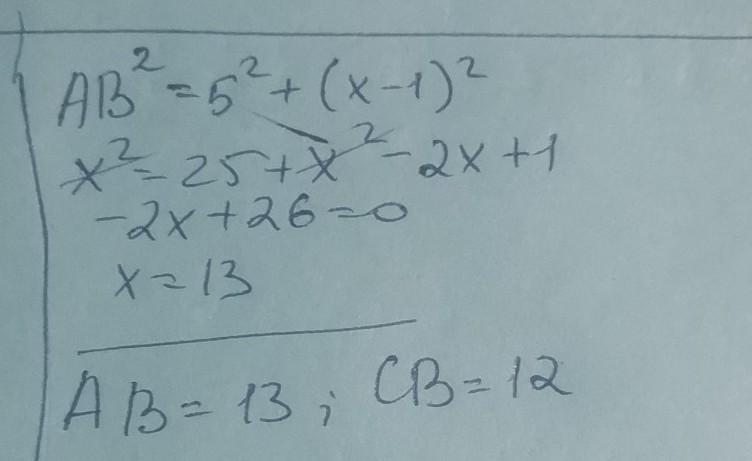 AB² = 5² + (x-1)²
x² = 25 + x² - 2x + 1
-2x + 26 = 0
x = 13
AB = 13 ; CB = 12